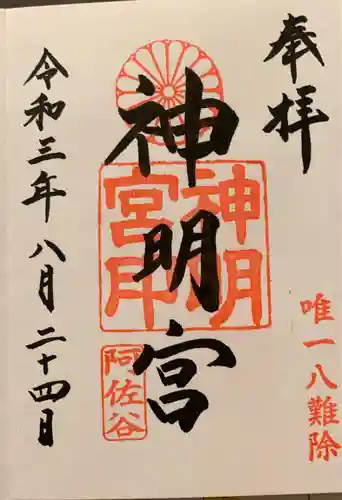 奉拝
唯一八難除
神明宮
神明宮印
阿佐谷
令和三年八月二十四日